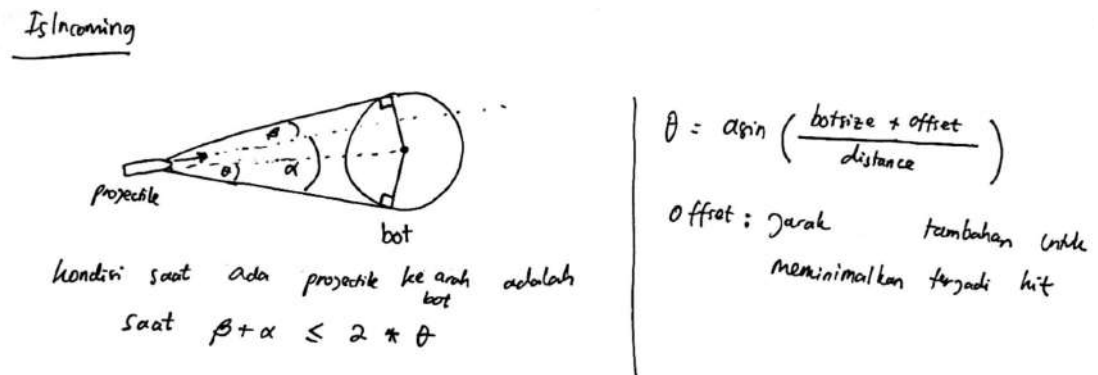 IsIncoming
β
θ
α
projectile
bot
kondisi saat ada projectile ke arah bot adalah
saat β + α ≤ 2 * θ
θ = asin ( botsize + offset / distance )
offset : jarak tambahan untuk
meminimalkan terjadi hit